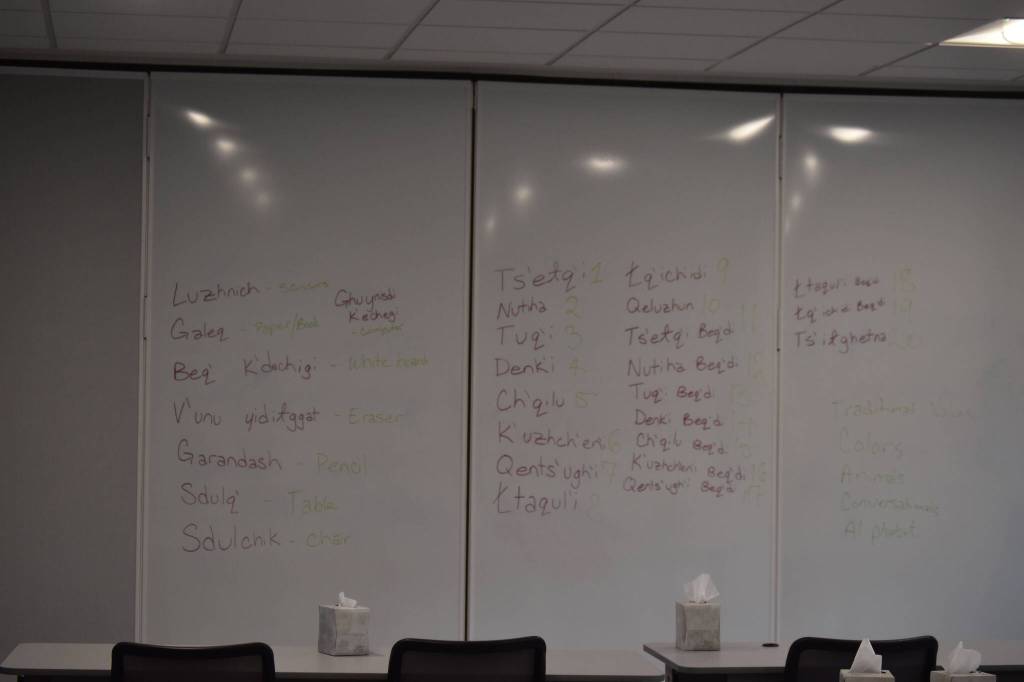 Luzhnich - Scissors
Ghuynsdi
K'echegi
- Computer
Galeq - Paper/Book
Beq' K'dochigi - White board
V'unu yidiłggat - Eraser
Garandash - Pencil
Sdulq' - Table
Sdulchik - chair
Ts'ełq'i 1
Nutiha 2
Tuq'i 3
Denk'i 4
Ch'qilu 5
K'uzhch'eni 6
Qents'ughi 7
Łtaqul'i 8
Łq'ichidi 9
Qeluzhun 10
Ts'ełq'i Beq'di 11
Nutiha Beq'di 12
Tuq'i Beq'di 13
Denki Beq'di
Ch'qilu Beq'di 15
K'uzhcheni Beq'di 16
Qents'ughi Beq'di 17
Łtaqul'i Beq'di 18
Łq'ichidi Beq'di 19
Ts'iłghetna 20
Traditional
Colors
Animals
Conversational
Alphabet